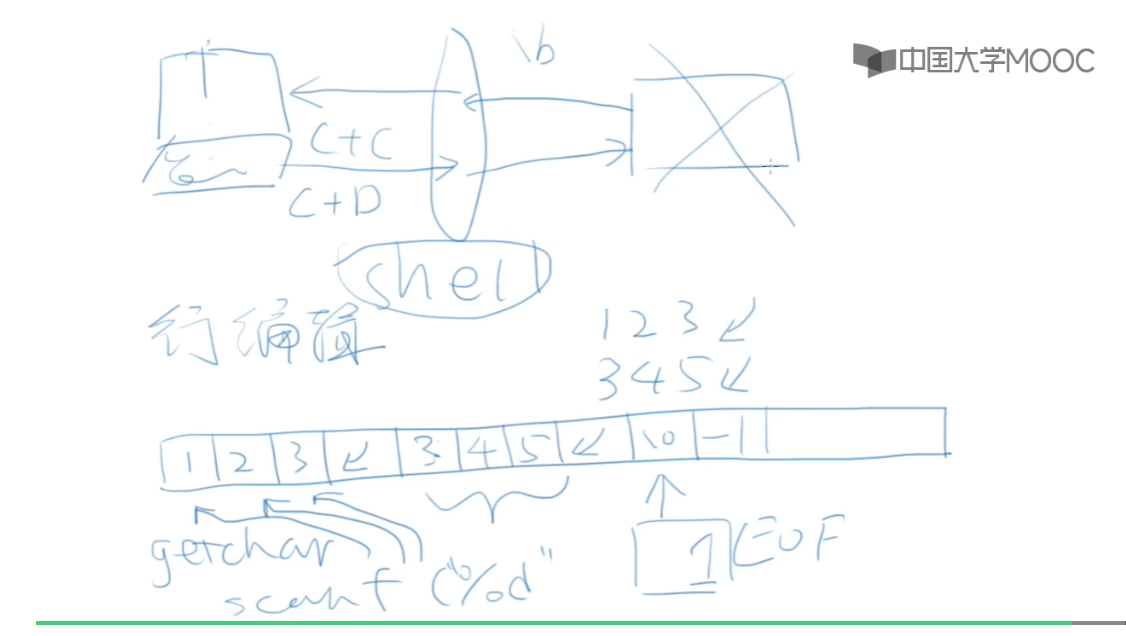 \b
中国大学MOOC
C+C
C+D
shell
行编辑
123↙
345↙
1 2 3 ↙ 3 4 5 ↙ \0 -1
getchar
scanf("%d"
1 EOF